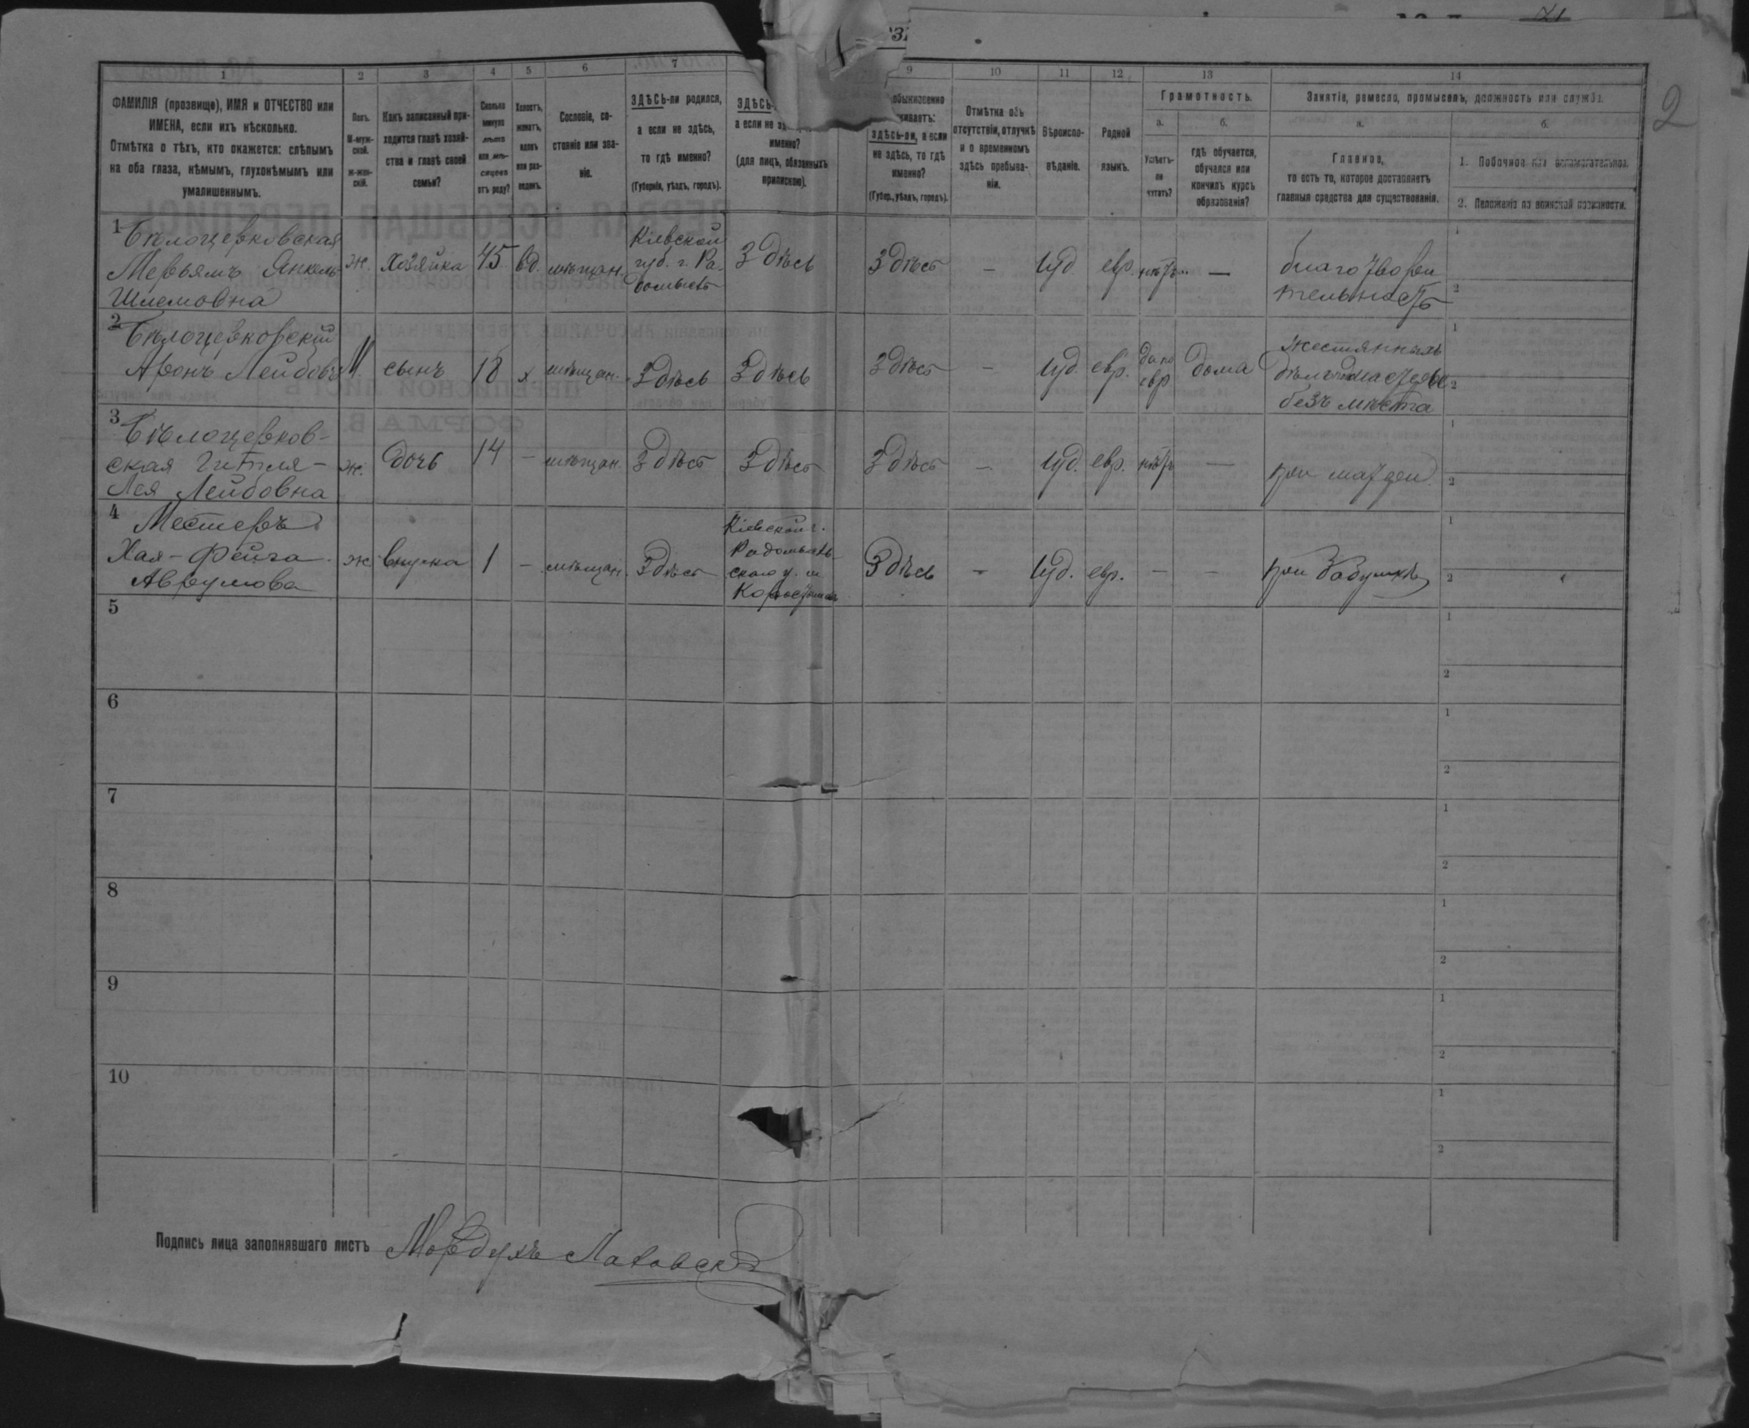 1 2 3 4 5 6 7 9 10 11 12 13 14
ФАМИЛІЯ (прозвище), ИМЯ и ОТЧЕСТВО или ИМЕНА, если ихъ нѣсколько.
Отмѣтка о тѣхъ, кто окажется: слѣпымъ на оба глаза, нѣмымъ, глухонѣмымъ или умалишеннымъ.
Полъ.
М-муж-
ской.
ж-жен-
скій.
Какъ записанный при-
ходится главѣ хозяй-
ства и главѣ своей
семьи?
Сколько
минуло
лѣтъ
или мѣ-
сяцевъ
отъ роду?
Холостъ,
женатъ,
вдовъ
или раз-
веденъ.
Сословіе, со-
стояніе или зва-
ніе.
ЗДѢСЬ-ли родился,
а если не здѣсь,
то гдѣ именно?
(Губернія, уѣздъ, городъ).
ЗДѢСЬ-
а если не
именно?
(для лицъ, обязанныхъ
припискою).
обыкновенно
ЗДѢСЬ-ли, а если
не здѣсь, то гдѣ
именно?
(Губер., уѣздъ, городъ).
Отмѣтка объ
отсутствіи, отлучкѣ
и о временномъ
здѣсь пребыва-
ніи.
Вѣроиспо-
вѣданіе.
Родной
языкъ.
Грамотность.
а.
Умѣетъ-
ли
читать?
б.
гдѣ обучается,
обучался или
кончилъ курсъ
образованія?
Занятіе, ремесло, промыселъ, должность или служба.
а.
Главное,
то есть то, которое доставляетъ
главныя средства для существованія.
б.
1. Побочное или вспомогательное.
2. Положеніе по воинской повинности.
2
1 Бѣлоцерковская
Мерьямъ Янкель-
Шлемовна
ж. хозяйка 45 вд. мѣщан.
Кіевской
губ. г. Ра-
домысль
Здѣсь Здѣсь — Іуд евр. нѣтъ —
благотвори
тельность
2 Бѣлоцерковскій
Аронъ Лейбовъ
М. сынъ 18 х мѣщан. Здѣсь Здѣсь Здѣсь — Іуд. евр.
да по
евр
дома
жестяныхъ
безъ мѣста
3 Бѣлоцерков-
ская Гитля-
Лея Лейбовна
ж. дочь 14 — мѣщан. Здѣсь Здѣсь Здѣсь — Іуд. евр. нѣтъ —
при матери
4 Местеръ
Хая-Фейга
Аврумова
ж внучка 1 — мѣщан. Здѣсь
Кіевской г.
Радомысль-
скаго у. м
Здѣсь — Іуд. евр. — —
при бабушкѣ
5
6
7
8
9
10
Подпись лица заполнявшаго листъ Мордухъ